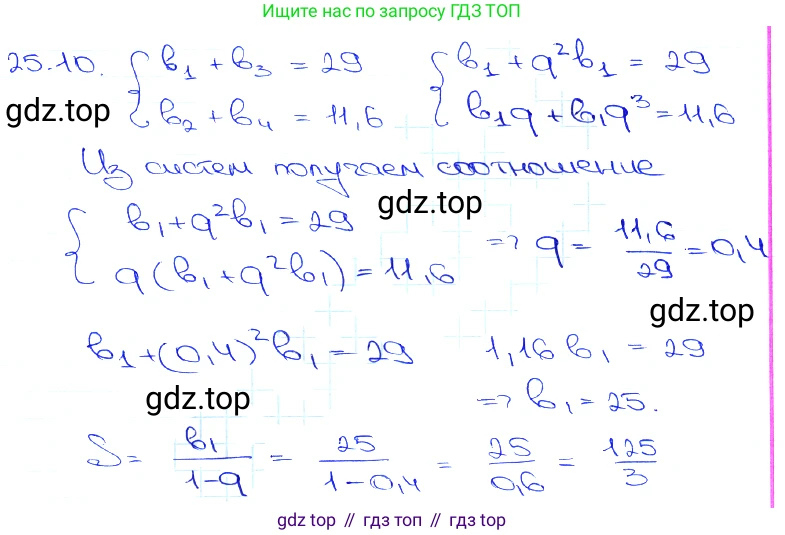 Ищите нас по запросу ГДЗ ТОП
25.10. { b₁ + b₃ = 29 { b₁ + q²b₁ = 29
gdz.top { b₂ + b₄ = 11,6 { b₁q + b₁q³ = 11,6
Из систем получаем соотношение
{ b₁ + q²b₁ = 29 gdz.top
{ q(b₁ + q²b₁) = 11,6 => q = 11,6/29 = 0,4
gdz.top
b₁ + (0,4)²b₁ = 29 1,16 b₁ = 29
gdz.top => b₁ = 25.
S = b₁/(1-q) = 25/(1-0,4) = 25/0,6 = 125/3
gdz top // гдз топ // gdz top